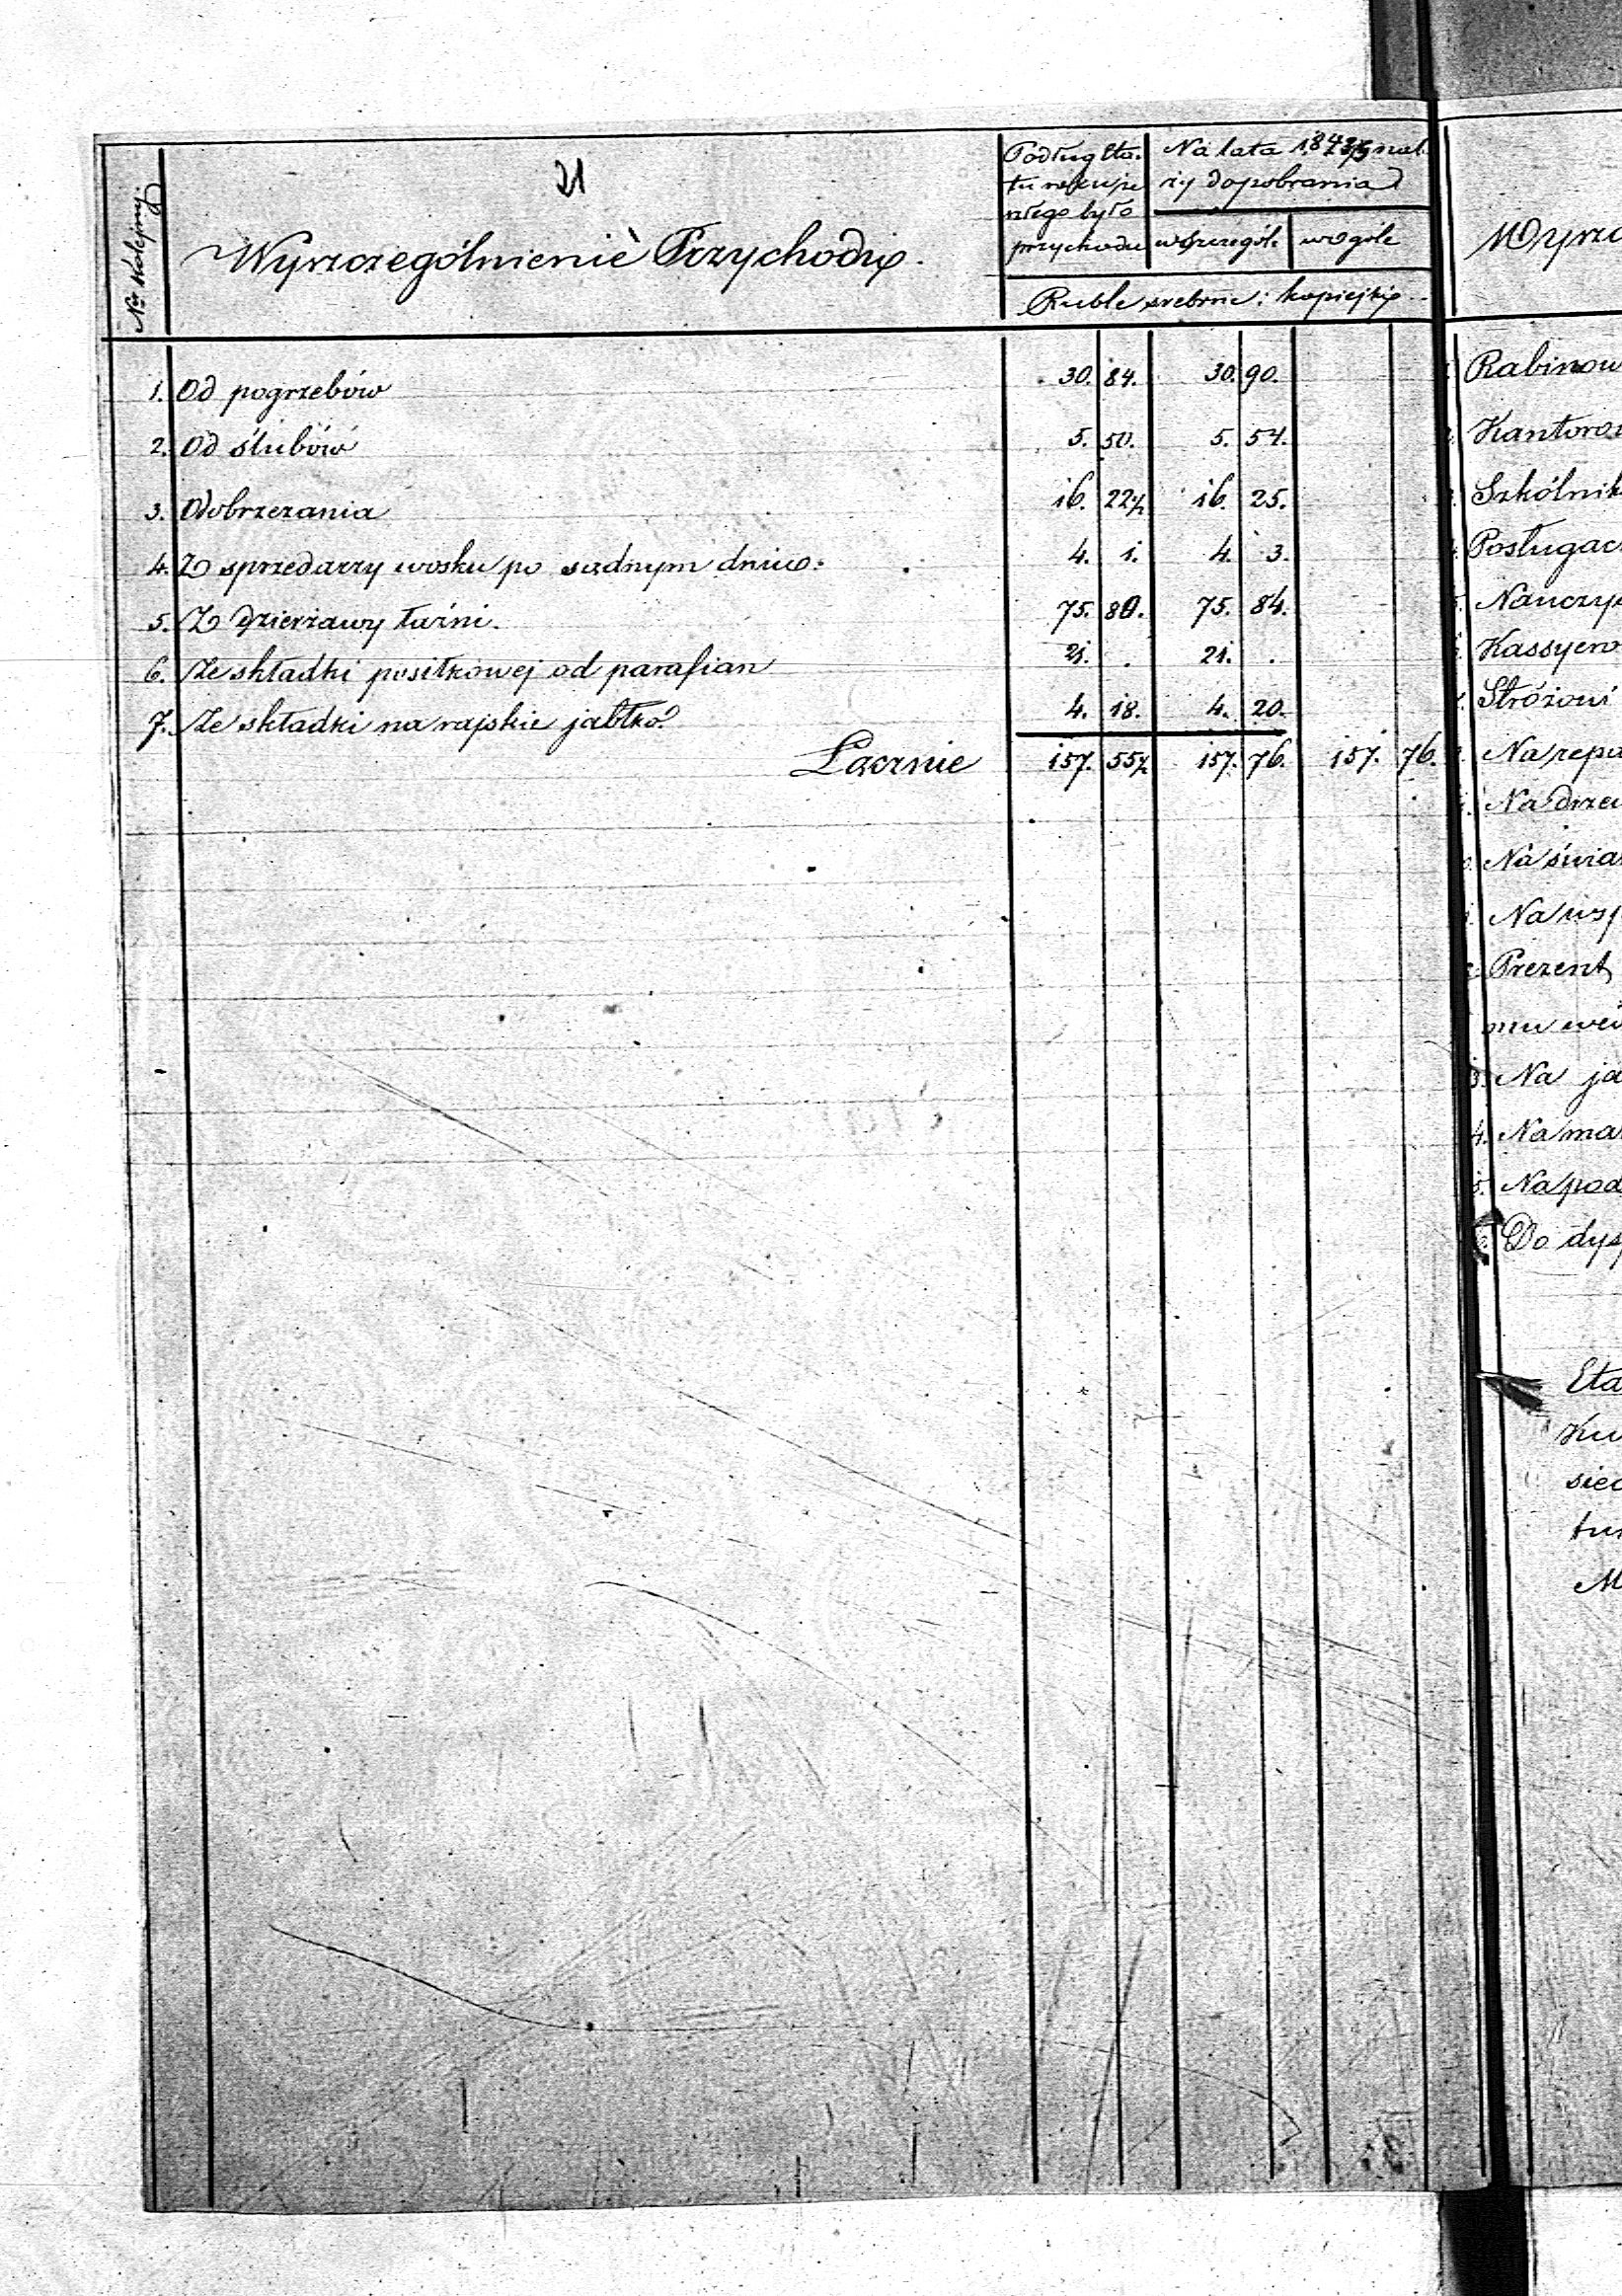 21
Nr Kolejny
Wyszczególnienie Przychodu.
Podług Eta-
tu
niego było
przychodu
Na lata 184 nal.
ży do pobrania
w szczegół. w ogóle
Ruble srebrne i kopiejki
1. Od pogrzebów 30. 84. 30. 90.
2. Od ślubów 5. 50. 5. 54.
3. Od obrzezania 16. 22½ 16. 25.
4. Z sprzedarzy wosku po sądnym dniu. 4. 1. 4. 3.
5. Z dzierżawy łaźni. 75. 80. 75. 84.
6. Ze składki posiłkowej od parafian 21. . 21. .
7. Ze składki na rajskie jabłko 4. 18. 4. 20.
Łącznie 157. 55½ 157. 76. 157. 76.
Wyszc
Rabinow
Kantorow
Szkólnik
Posługac
Nauczyc
Kassyero
Stróżowi
Na repa
Na drzew
Na świa
Na usp
Prezent
mu
3. Na ja
4. Na ma
5. Na pod
Do dys
Eta
Ku
siec
tu
M